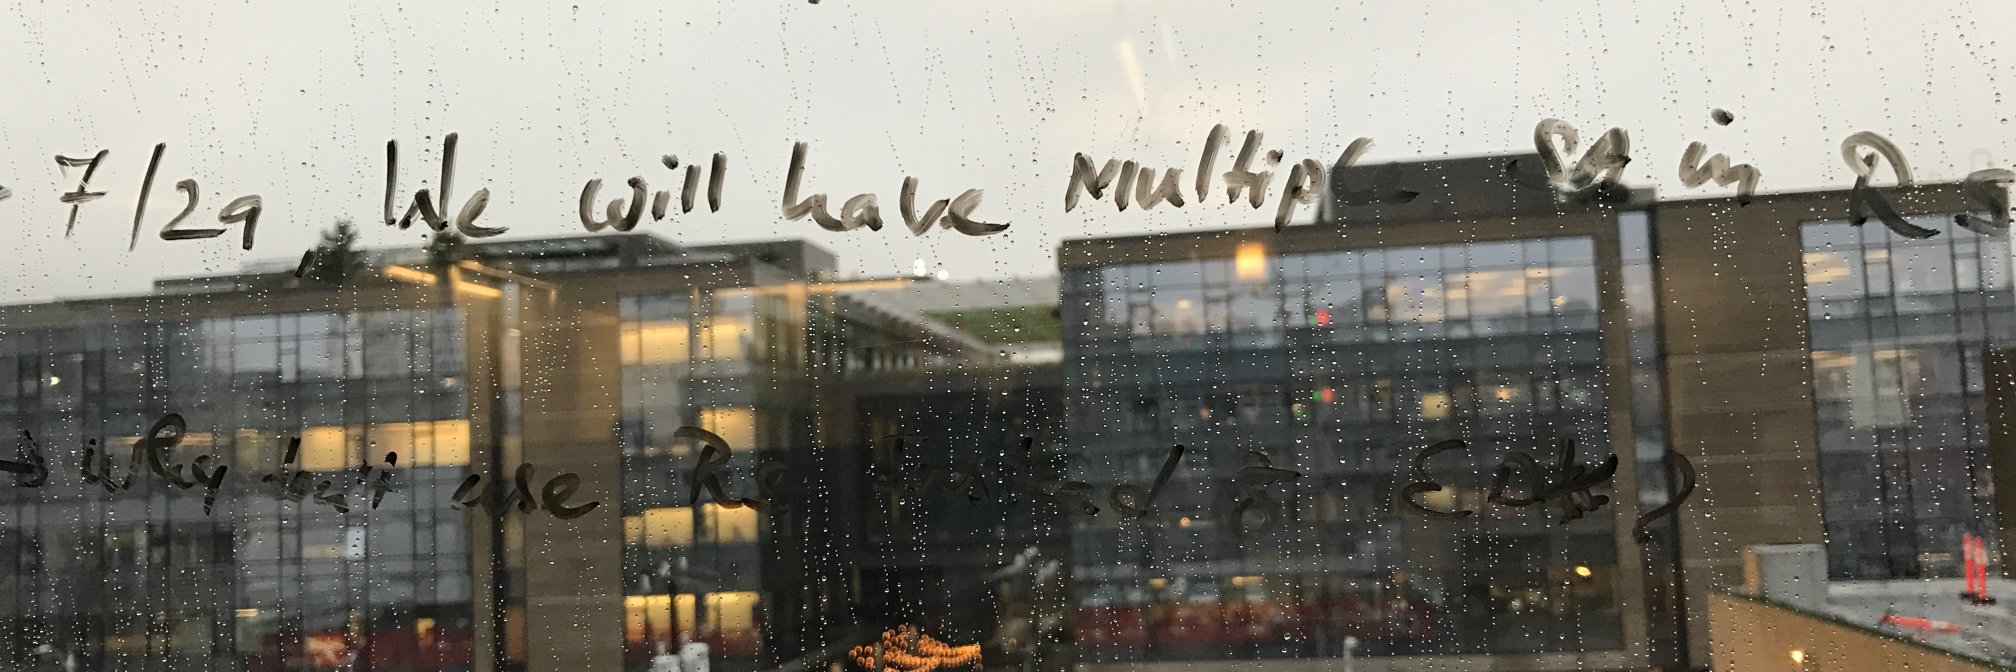 - 7/29 We will have Multiple SA in RS
→ why don't use RS Instead of